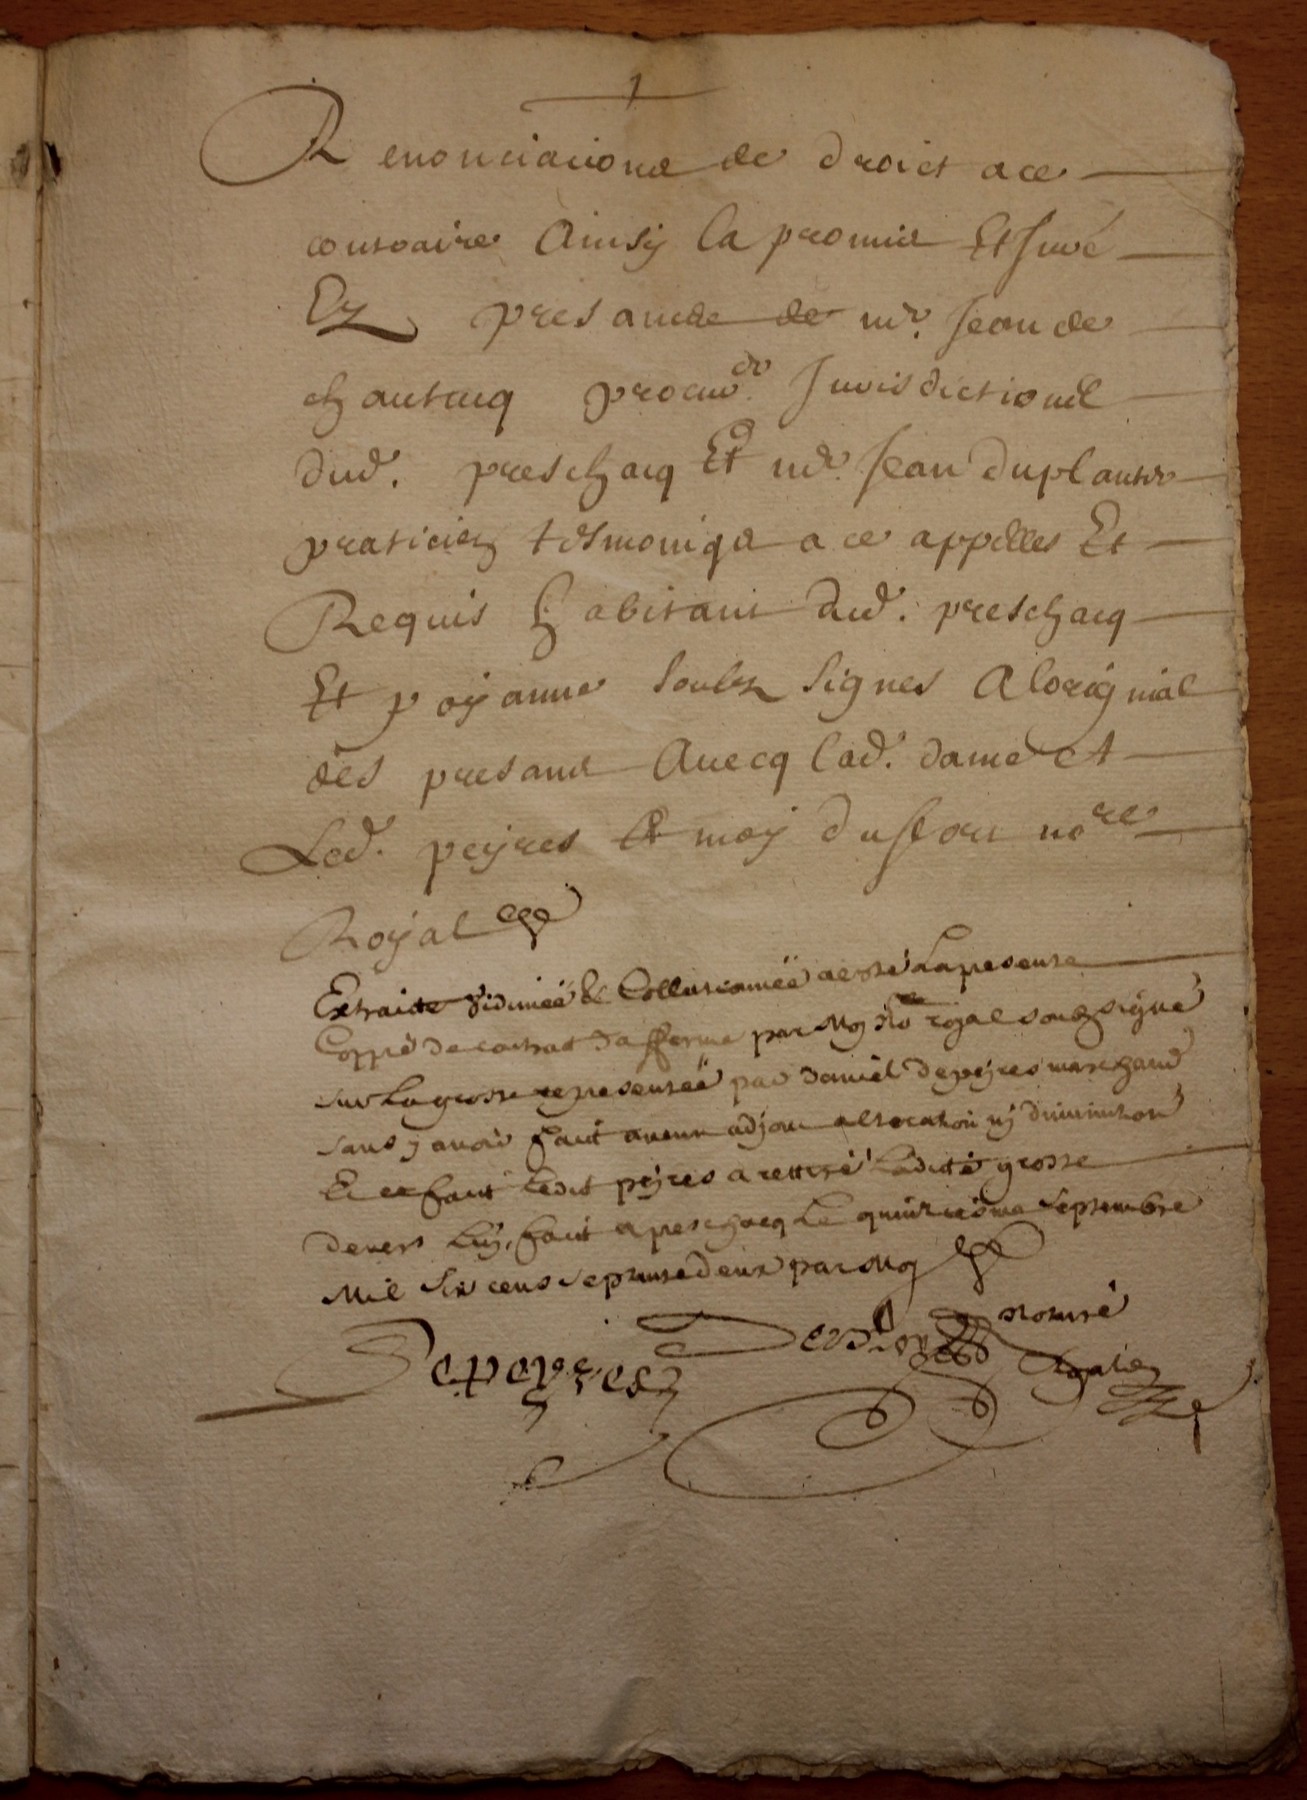 Renonciations de droict a ce
contraire Ainsy la promis Et Juré
Ez presance de mr. Jean de
chautucq procur. Jurisdictionel
dud. preschacq Et mr. Jean duplantier
praticien tesmoings a ce appelles Et
Requis habitans dud. preschacq
Et poyanne soubz signes A loriginal
des presans Avecq lad. dame et
Led. peyres Et moy duflou nore
Royal
Extraicte vidimée & Collationnée a esté La presente
Coppie de contract dafferme par Moy No royal soubzsigné
sur La grosse represensée par daniel depeyres marchand
sans y avoir faict aucun adjou altocation ny diminution
Et ce faict Ledit peyres a rettiré Ladicte grosse
devers Luy, faict a peschacq Le quinziesme septembre
Mil Six cens septante deux par Moy
Depeyres
Notaire
Royal